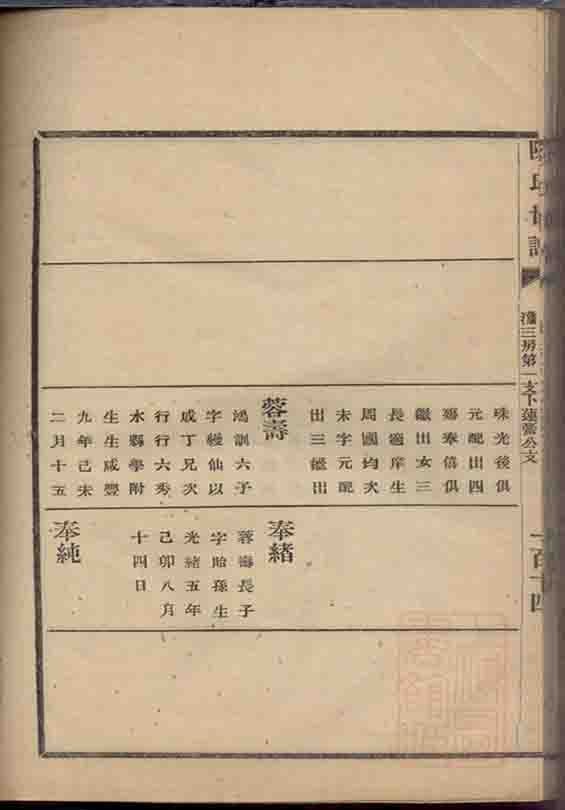 陳氏世譜
三房第一支下蓮翁公支
一百十四
珠光後俱
元配出四
壽奉僖俱
繼出女三
長適岸生
周國均次
未字元配
出三繼出
蓉壽
鴻訓六子
字縵仙以
成丁兄次
行行六秀
水縣學附
生生咸豐
九年己未
二月十五
奉緒
蓉壽長子
字貽孫生
光緒五年
己卯八月
十四日
奉純